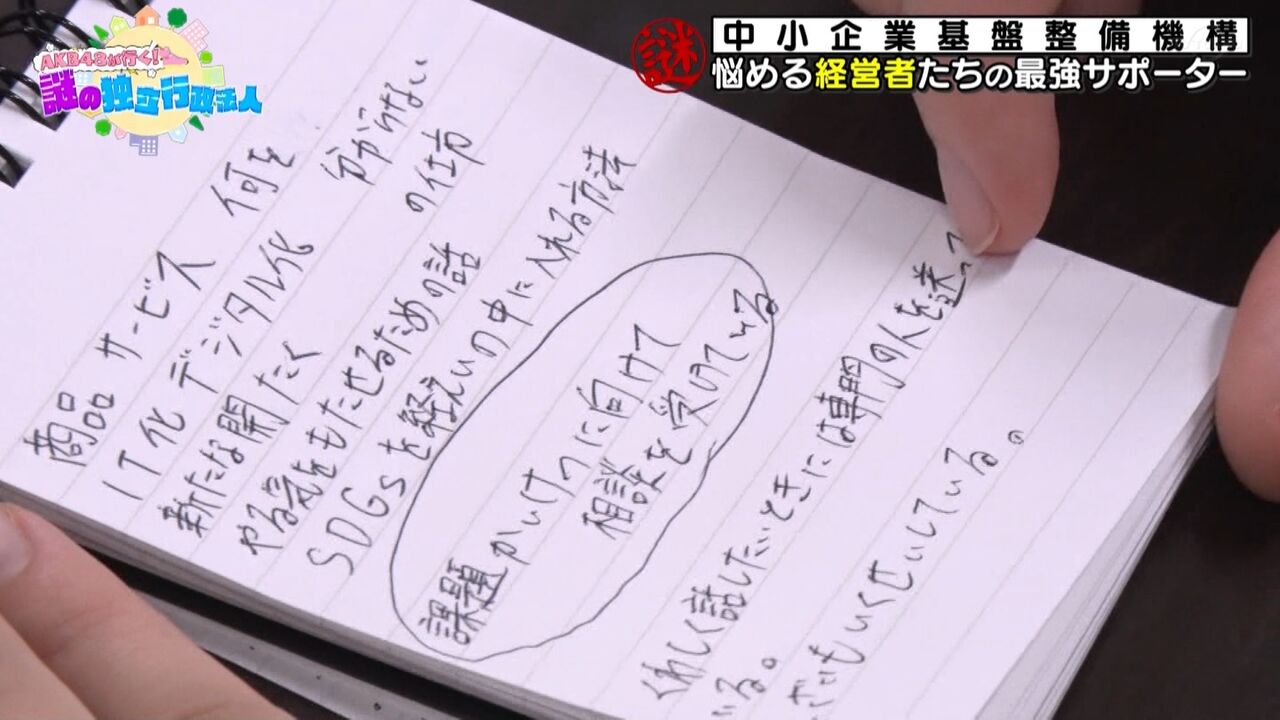 AKB48が行く!
謎の独立行政法人
謎 中小企業基盤整備機構
悩める経営者たちの最強サポーター
商品 サービス 何を
IT化 デジタル化 分からない
新たな開たく の仕方
やる気をもたせるための話
SDGsを経えいの中に入れる方法
課題かいけつに向けて
相談を受けている
くわしく話したいときには専門の人を送って
いる。
いくせいしている。